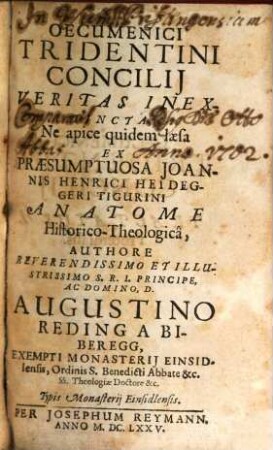 OECUMENICI
TRIDENTINI
CONCILIJ
VERITAS INEX-
NCTA
Ne apice quidem læsa
EX
PRÆSUMPTUOSA JOAN-
NIS HENRICI HEIDEG-
GERI TIGURINI
ANATOME
Historico-Theologicâ,
AUTHORE
REVERENDISSIMO ET ILLU-
STRISSIMO S. R. I. PRINCIPE,
AC DOMINO, D.
AUGUSTINO
REDING A BI-
BEREGG,
EXEMPTI MONASTERIJ EINSID-
lensis, Ordinis S. Benedicti Abbate &c.
SS. Theologiæ Doctore &c.
Typis Monasterij Einsidlensis.
PER JOSEPHUM REYMANN,
ANNO M. DC. LXXV.
Otto
Abbas
Anno 1702.